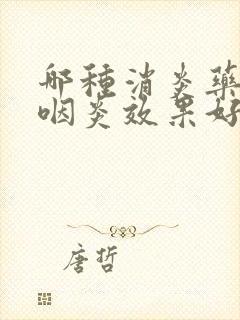 哪種消炎藥
咽炎效果好
唐哲